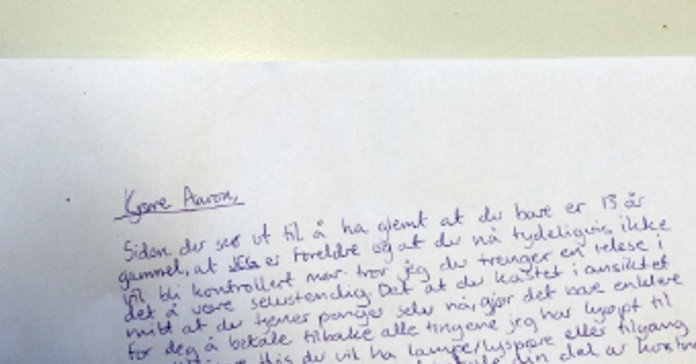 Kjære Aaron,
Siden du ser ut til å ha glemt at du bare er 13 år
gammel, at JEG er Foreldre og at du nå tydeligvis ikke
vil bli kontrollert mer tror jeg du trenger en lekse i
det å være selvstendig. Det at du kastet i ansiktet
mitt at du tjener penger selv nå, gjør det bare enklere
for deg å betale tilbake alle tingene jeg har kjøpt til
du vil ha lampe/lyspære eller tilgang
din del av